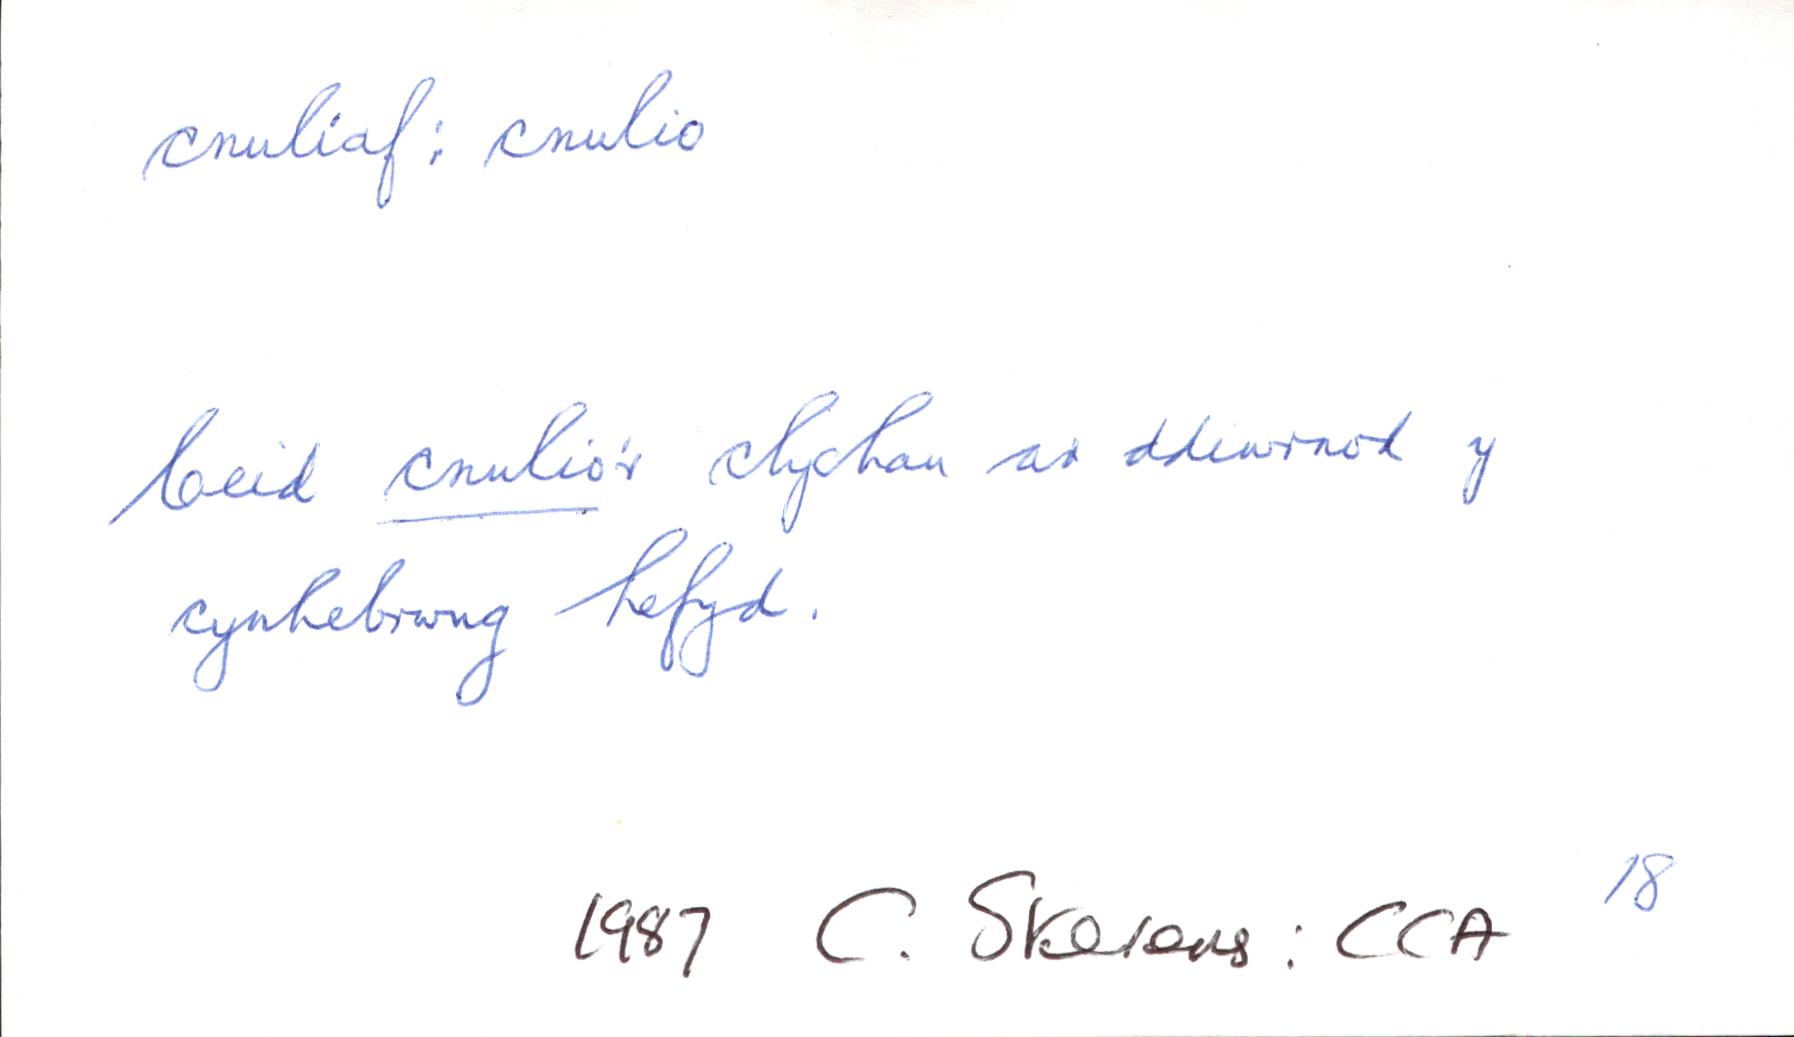 cnuliaf: cnulio
Ceid cnulio'r clychau ar ddiwrnod y
cynhebrwng hefyd.
18
1987 C. Stevens: CCA